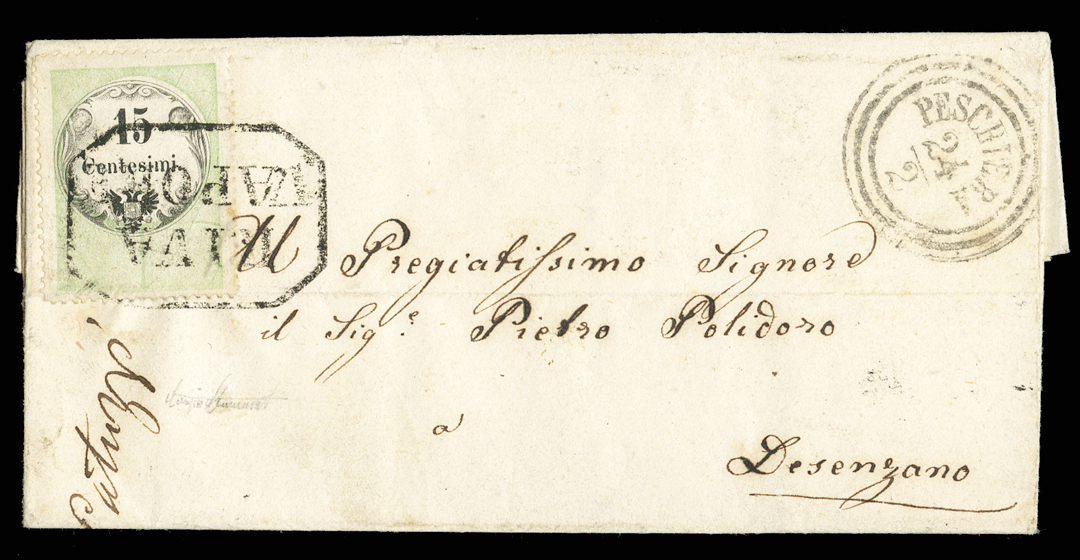 15
Centesimi
VAPORE
RIVA
PESCHIERA
24
/2
Al Pregiatissimo Signore
il Sigᵉ. Pietro Polidoro
a
Desenzano